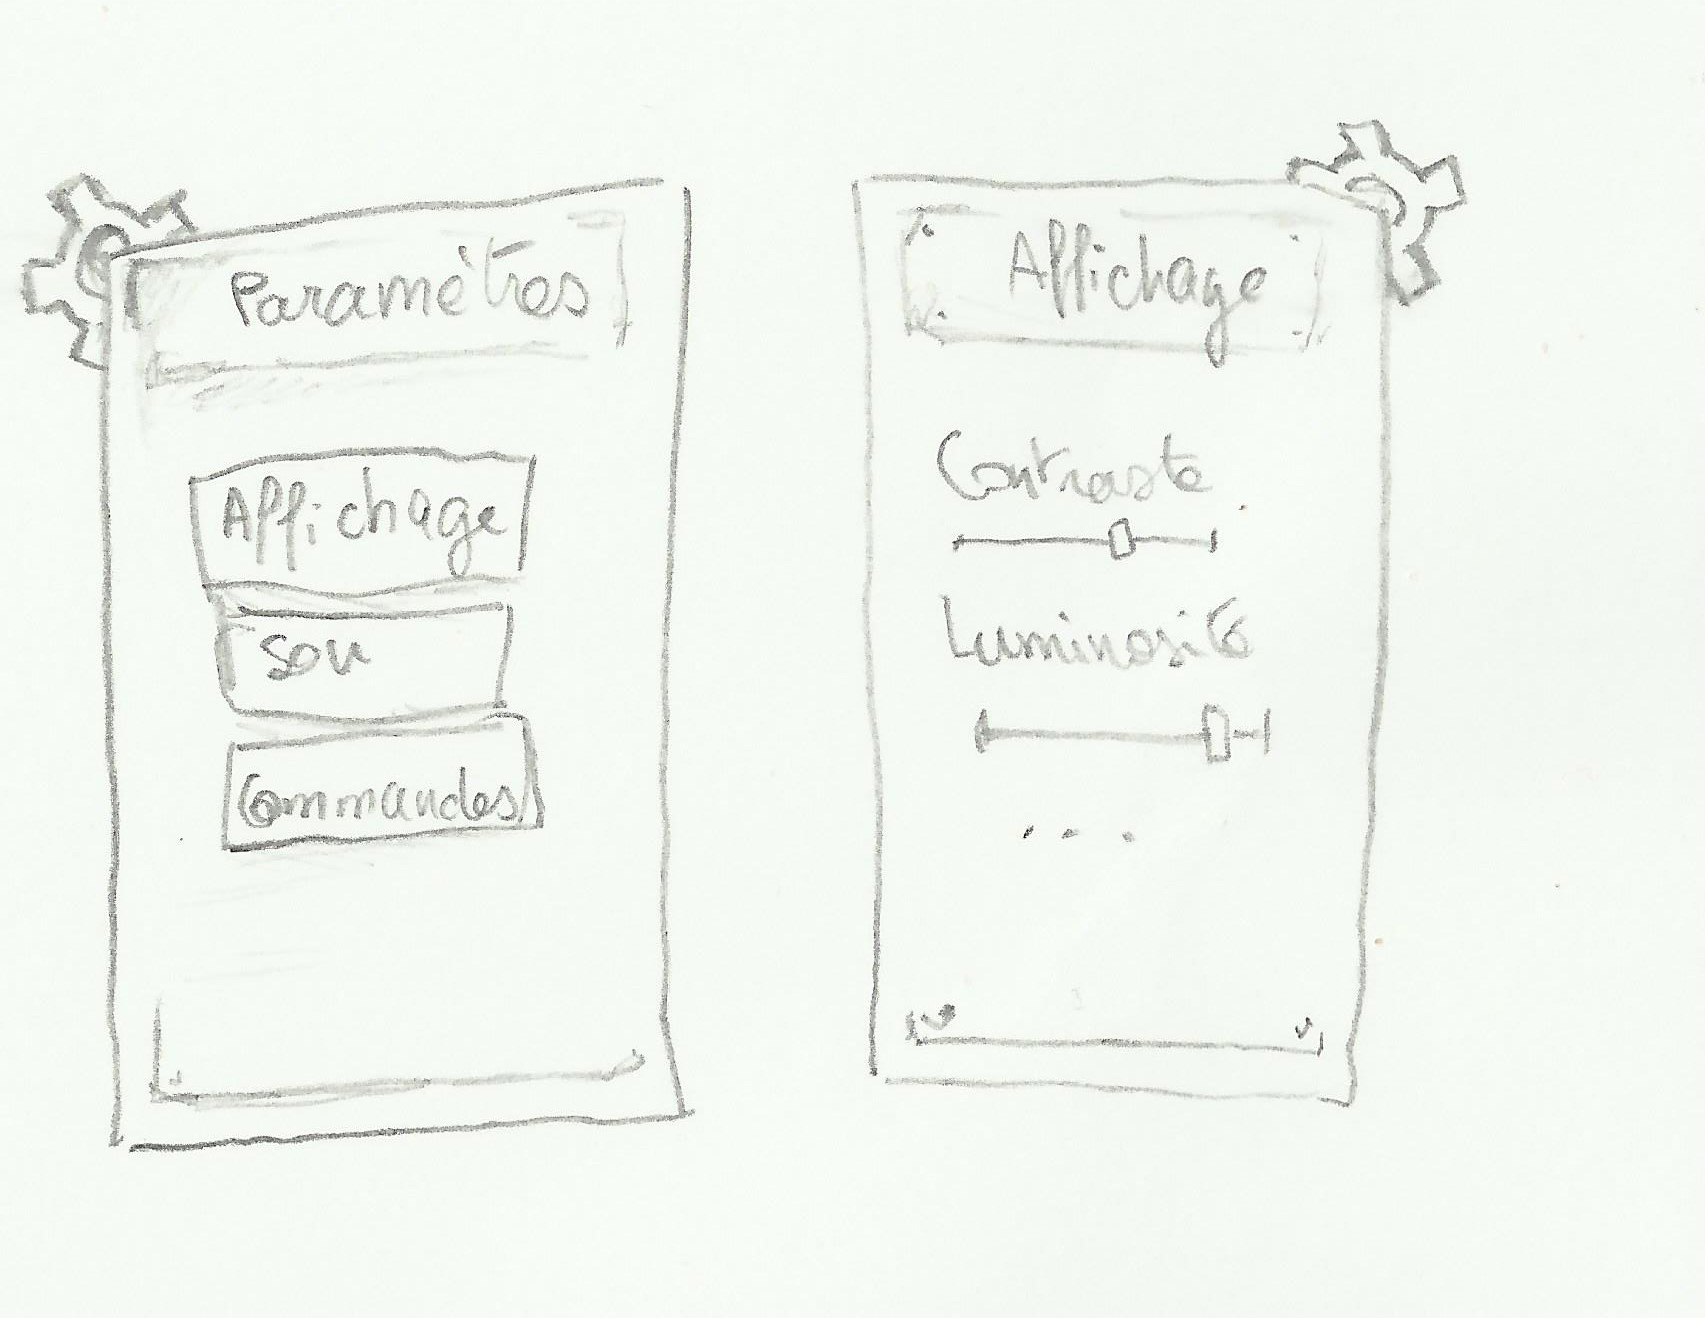 Paramètres
Affichage
Son
Commandes
Affichage
Contraste
Luminosité
...